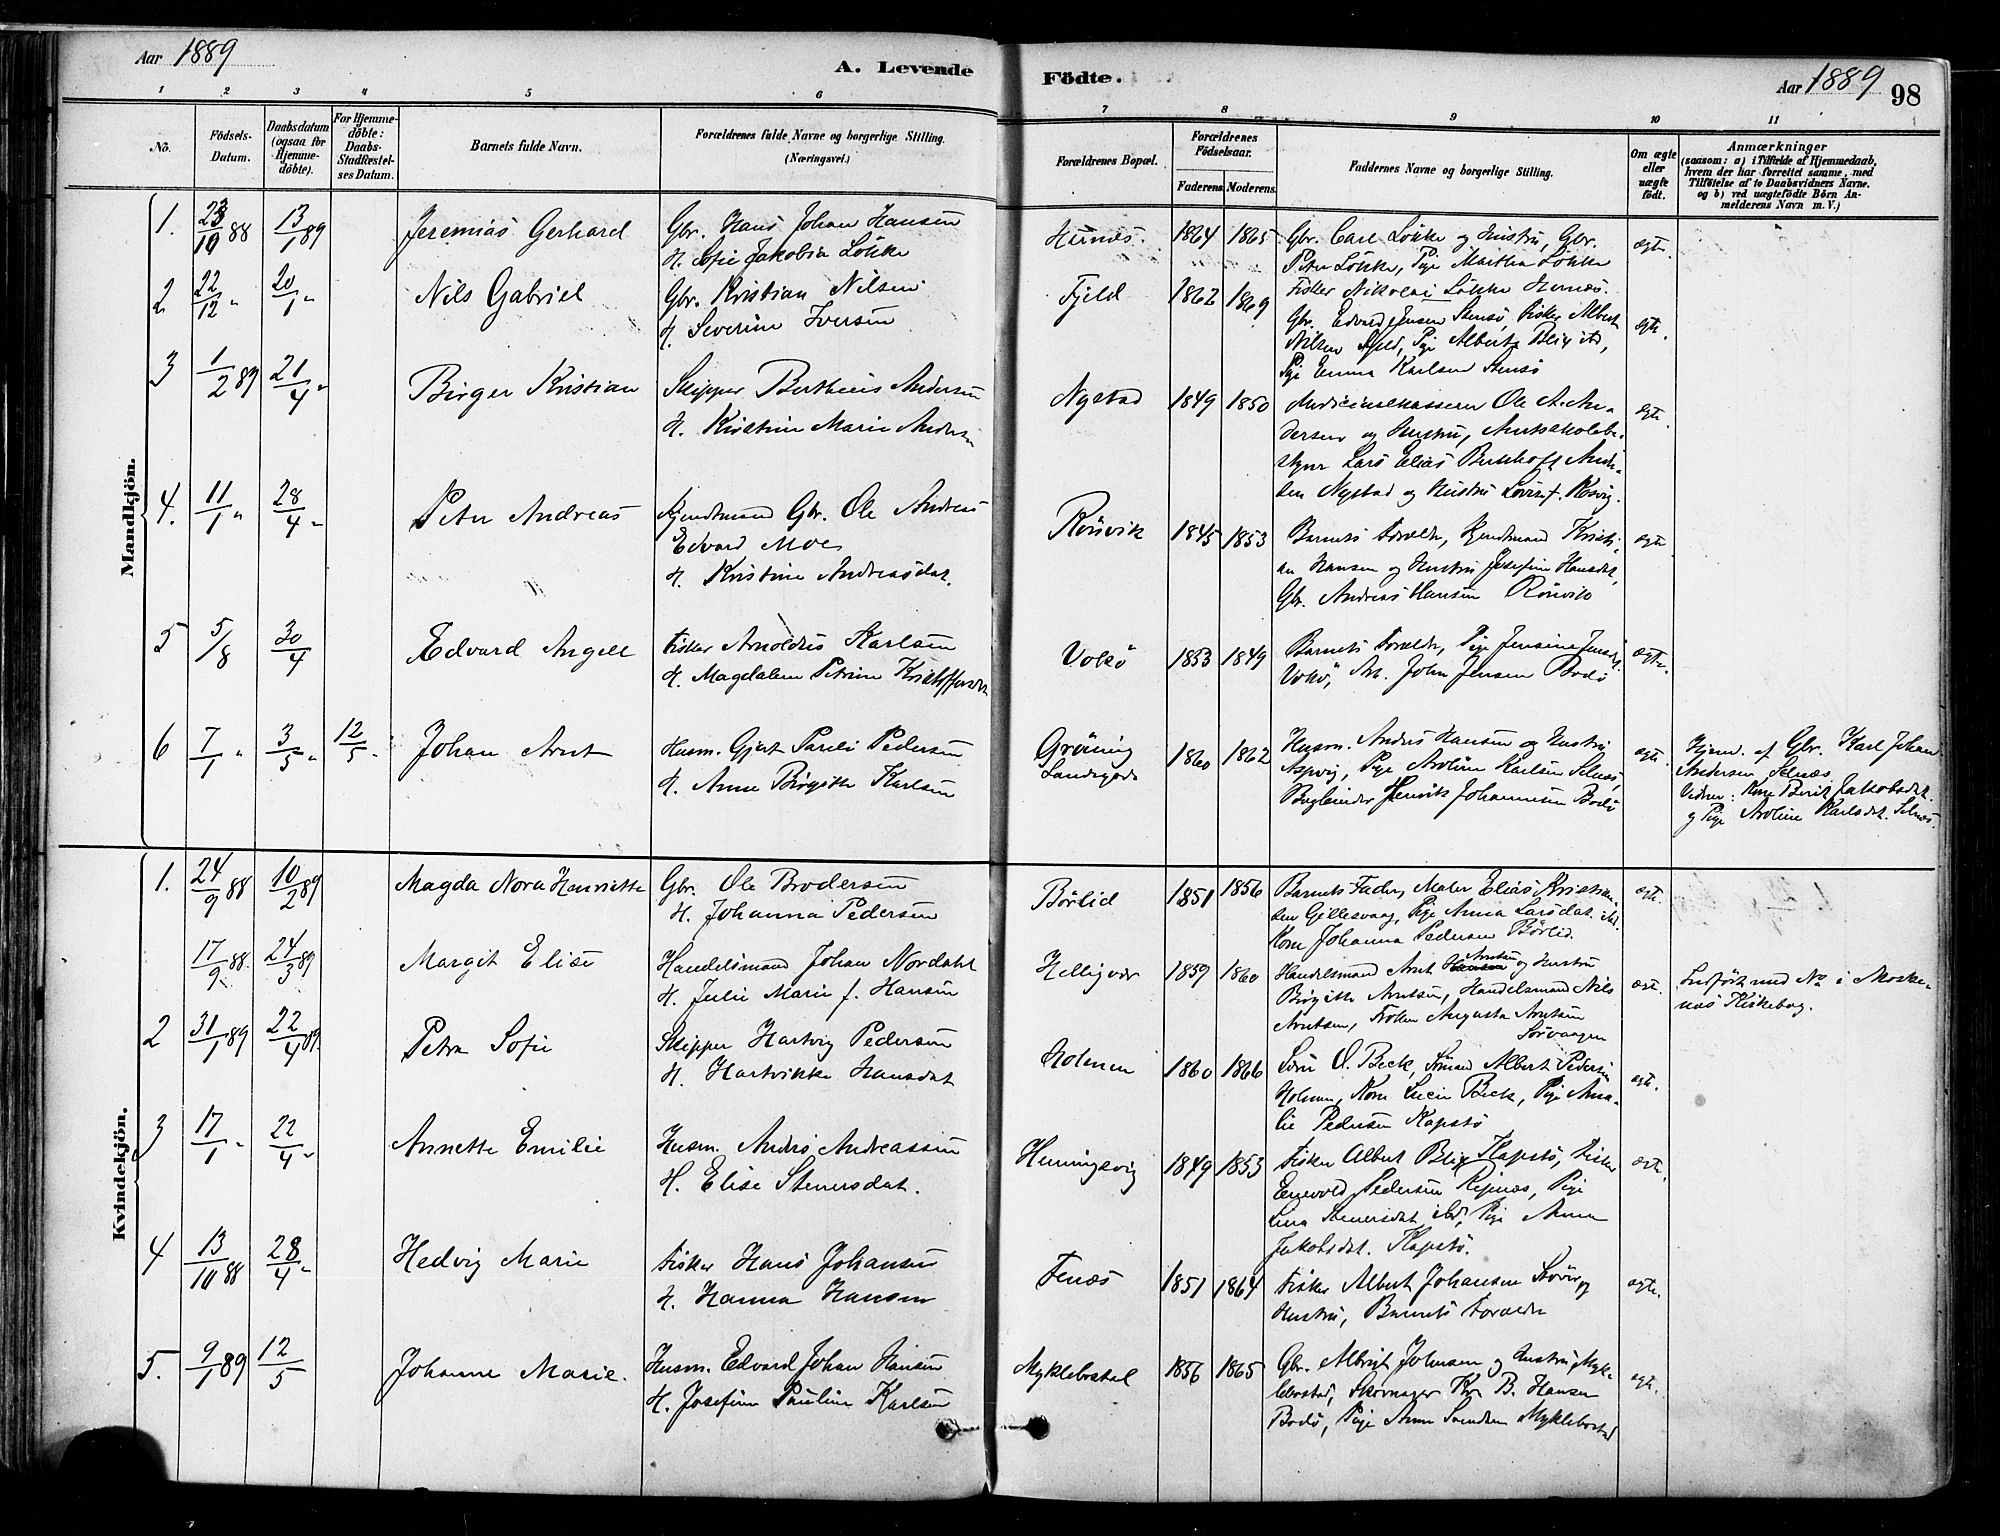 Aar 1889
A. Levende
Födte.
Aar 1889 98
1 2 3 4 5 6 7 8 9 10 11
No.
Födsels-
Datum.
Daabsdatum
(ogsaa for
Hjemme-
döbte).
For Hjemme-
döbte:
Daabs-
Stadfæstel-
ses Datum.
Barnets fulde Navn.
Forældrenes fulde Navne og borgerlige Stilling.
(Næringsvei.)
Forældrenes Bopæl.
Forældrenes
Födselsaar.
Faderens. Moderens.
Faddernes Navne og borgerlige Stilling.
Om ægte
eller
uægte
födt.
Anmærkninger
(saasom: a) i Tilfælde af Hjemmedaab,
hvem der har forrettet samme, med
Tilföielse af to Daabsvidners Navne.
og b) ved uægtefödte Börn An-
melderens Navn m. V.)
Mandkjön.
1. 23/10 88 13/1 89 Jeremias Gerhard Gbr. Hans Johan Hansen
H. Sofie Jakobia Lökke
1864 1865 Gbr. Carl Lökke og Hustru, Gbr.
Peter Lökke, Pige Martha Lökke
ægte.
2 22/12 " 20/1 " Nils Gabriel Gbr. Kristian Nilsen
H. Severine Iversen
Fjeld 1862 1869 Fisker Nikolai Lökke Hernæs.
Gbr. Edvard Jensen Stensö, Fisker Albert
Nilsen Fjeld, Pige Alberte Blix ibd,
Pige Emma Karlsen Stensö
ægte.
3 1/2 89 21/4 " Birger Kristian Skipper Bertheus Andersen
H. Kristine Marie Andersen
Nystad 1849 1850 Medicinalkasserer Ole A. An-
dersen og Hustru, Amtsskolebe-
styrer Lars Elias Andre-
sen Nystad og Hustru
ægte.
4. 11/1 " 28/4 " Peter Andreas Gbr. Ole Andreas
Edvard Moe
H. Kristine Andreasdat.
Rönvik 1845 1853 Barnets Forældre, Kristi-
an Hansen og Hustru Josefine Hansdat,
Gbr. Andreas Hansen Rönvik
ægte
5 5/8 30/4 Edvard Angell Fisker Arnoldus Karlsen
H. Magdalene Petrine Kristoffersen
Valsö 1853 1849 Barnets Forældre, Pige Jensine Jensdat.
Arb. John Jensen Bodö
ægte.
6 7/1 " 3/5 " 12/5 " Johan Arnt Husm. Gjert Pareli Pedersen
H. Anne Birgitte Karlsen
Gröning
Landegode
1860 1862 Husm. Anders Hansen og Hustru
Aspvig, Pige Aroline Karlsen Selnæs,
Bogbinder Henrik Johannesen Bodö
ægte.
Hjemd. af Gbr. Karl Johan
Andersen Selnæs
Vidner: Kone Berit Jakobsdat.
og Pige Aroline Karlsdat. Selnæs.
Kvindekjön.
1. 24/9 88 10/2 89 Magda Nora Henriette Gbr. Ole Brodersen
H. Johanna Pedersen
Börlid 1851 1856 Barnets Fader, Maler Elias Kristian-
sen Gillesvaag, Pige Anna Larsdat. ibd.
Kone Johanna Pedersen Börlid.
ægte.
17/9 88. 24/3 89 Margit Elise Handelsmand Johan Nordahl
H. Julie Marie f. Hansen
Helligvær 1859 1860 Handelsmand Arnt Arntsen og Hustru
Birgitte Arntsen, Handelsmand Nils
Arntsen, Fröken Augusta Arntsen
Sörvaagen
ægte.
Indfört med No i Moske-
næs Kirkebog.
2 31/1 89 22/4 89. Petra Sofie Skipper Hartvig Pedersen
H. Hartvikke Hansdat
Holmen 1860 1866 Sören O. Beck, Sömand Albert Pedersen
Holmen, Kone Lucie Beck, Pige Ama-
lie Pedersen Kapstö
ægte.
3 17/1 " 22/4 " Annette Emilie Husm. Anders Andreassen
H. Elise Stenersdat.
Henningsvig 1849 1853 Fisker Albert Blix Kapstö, Fisker
Enevold Pedersen, Pige
Lina Stenersdat ibd, Pige Anna
Jakobsdat. Kapstö.
ægte.
4 13/10 88 28/4 " Hedvig Marie Fisker Hans Johansen
H. Hanna Hansen
Fenæs 1851 1864 Fisker Albert Johansen og
Hustru, Barnets Forældre
ægte.
5. 9/1 89 12/5 Johanne Marie. Husm. Edvard Johan Hansen
H. Josefine Pauline Karlsen
Myklebostad 1856 1865 Gbr. Albrigt Johnsen og Hustru Myk-
lebostad, Skomager Kr. B. Hansen
Bodö, Pige Anne Svendsen Myklebostad
ægte.